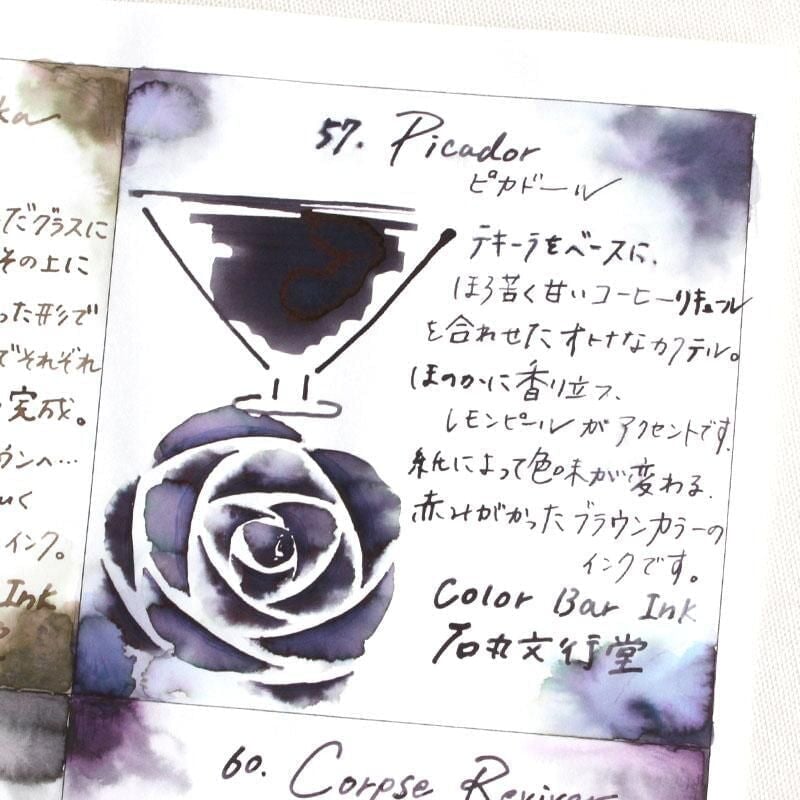 57. Picador
ピカドール
テキーラをベースに、
ほろ苦く甘いコーヒーリキュール
を合わせたオトナなカクテル。
ほのかに香り立つ、
レモンピールがアクセントです。
紙によって色味が変わる、
赤みがかったブラウンカラーの
インクです。
Color Bar Ink
石丸文行堂
ka
だグラスに
その上に
った形で
でそれぞれ
完成。
ウンへ…
いく
インク。
Ink
60. Corpse Reviver